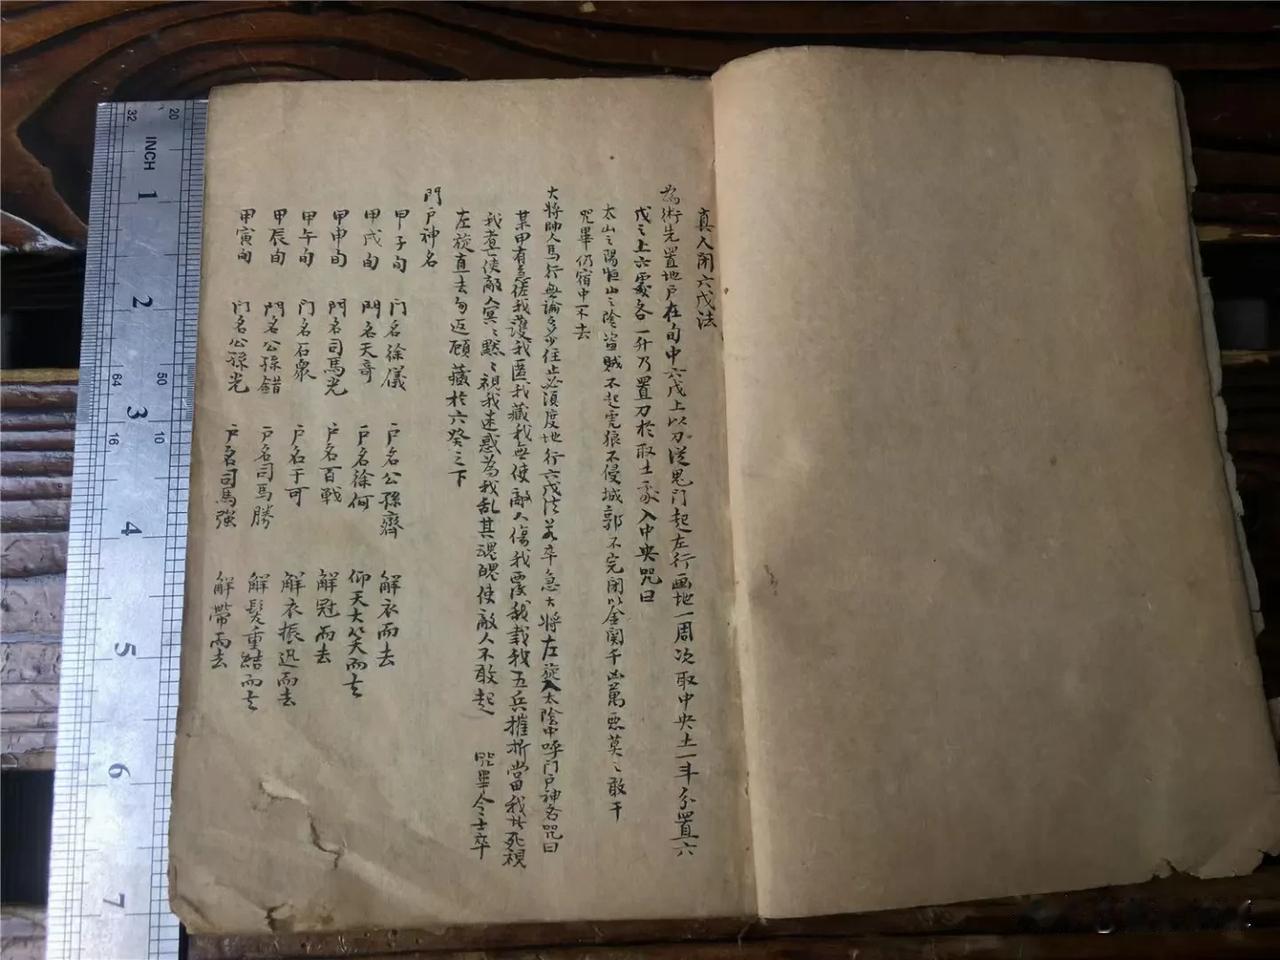 真人閉六戊法
為術先置地戶在旬中六戊上以刀從鬼門起左行畫地一周次取中央土一斗分置六
戊之上六處各一升乃置刀於取土處入中央咒曰
太山之陽恒山之陰盜賊不起虎狼不侵城郭不完閉以金関千凶萬惡莫之敢干
咒畢仍宿中不去
大將帥人馬行無論多少住止必須度地行六戊法若卒急大將左旋入太陰中呼門戶神名咒曰
某甲有急從我護我匿我藏我無使敵人傷我覆我載我五兵摧折當我者死視
我者使敵人冥冥默默視我迷惑為我乱其魂魄使敵人不敢起 咒畢令士卒
左旋直去勿返顧藏於六癸之下
門戶神名
甲子旬 门名徐儀 戶名公孫齊 解衣而去
甲戌旬 門名天奇 戶名徐何 仰天大笑而去
甲申旬 門名司馬光 戶名百戰 解冠而去
甲午旬 门名石眾 戶名于可 解衣振迅而去
甲辰旬 門名公孫錯 戶名司馬勝 解髮重結而去
甲寅旬 门名公孫光 戶名司馬強 解帶而去
INCH
32
20
1
2
64
50
3
16
10
4
5
6
7